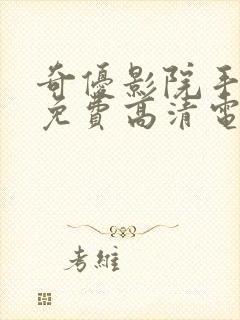 奇優影院手
免費高清電
考維